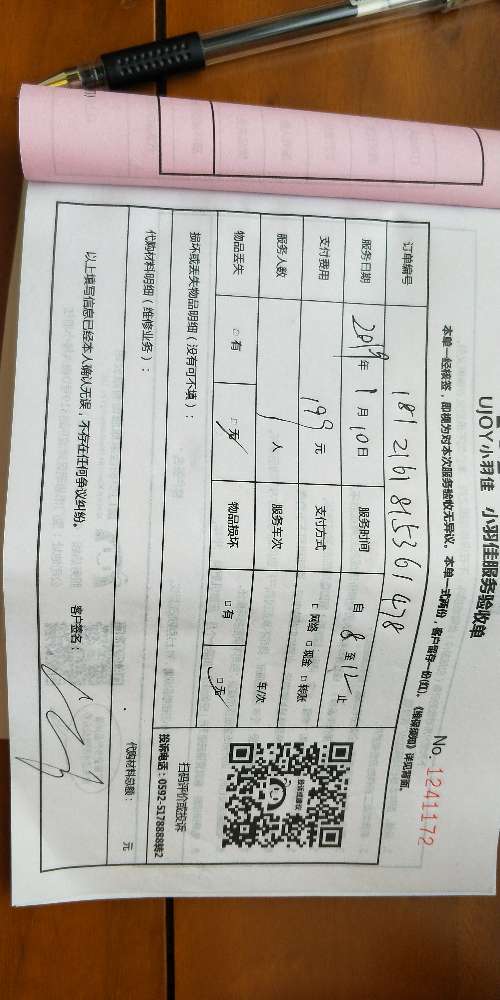 UJOY小羽佳 小羽佳服务验收单
No. 1241172
本单一经核签，即视为对本次服务验收无异议。本单一式两份，客户留存一份(红)，《赔保须知》详见背面。
订单编号 18121618153361478
服务日期 2019年 1月 10日 服务时间 自 8 至 12 止
支付费用 199 元 支付方式 □ 网络 □ 现金 □ 转账
服务人数 1 人 服务车次 车次
物品丢失 □ 有 □ 无 物品损坏 □ 有 □ 无
投诉或建议
扫码评价或投诉
投诉电话：0592-5178888转2
损坏或丢失物品明细（没有可不填）：
代购材料明细（维修业务）：
代购材料总额： 元
以上填写信息已经本人确认无误，不存在任何争议纠纷。
客户签名：